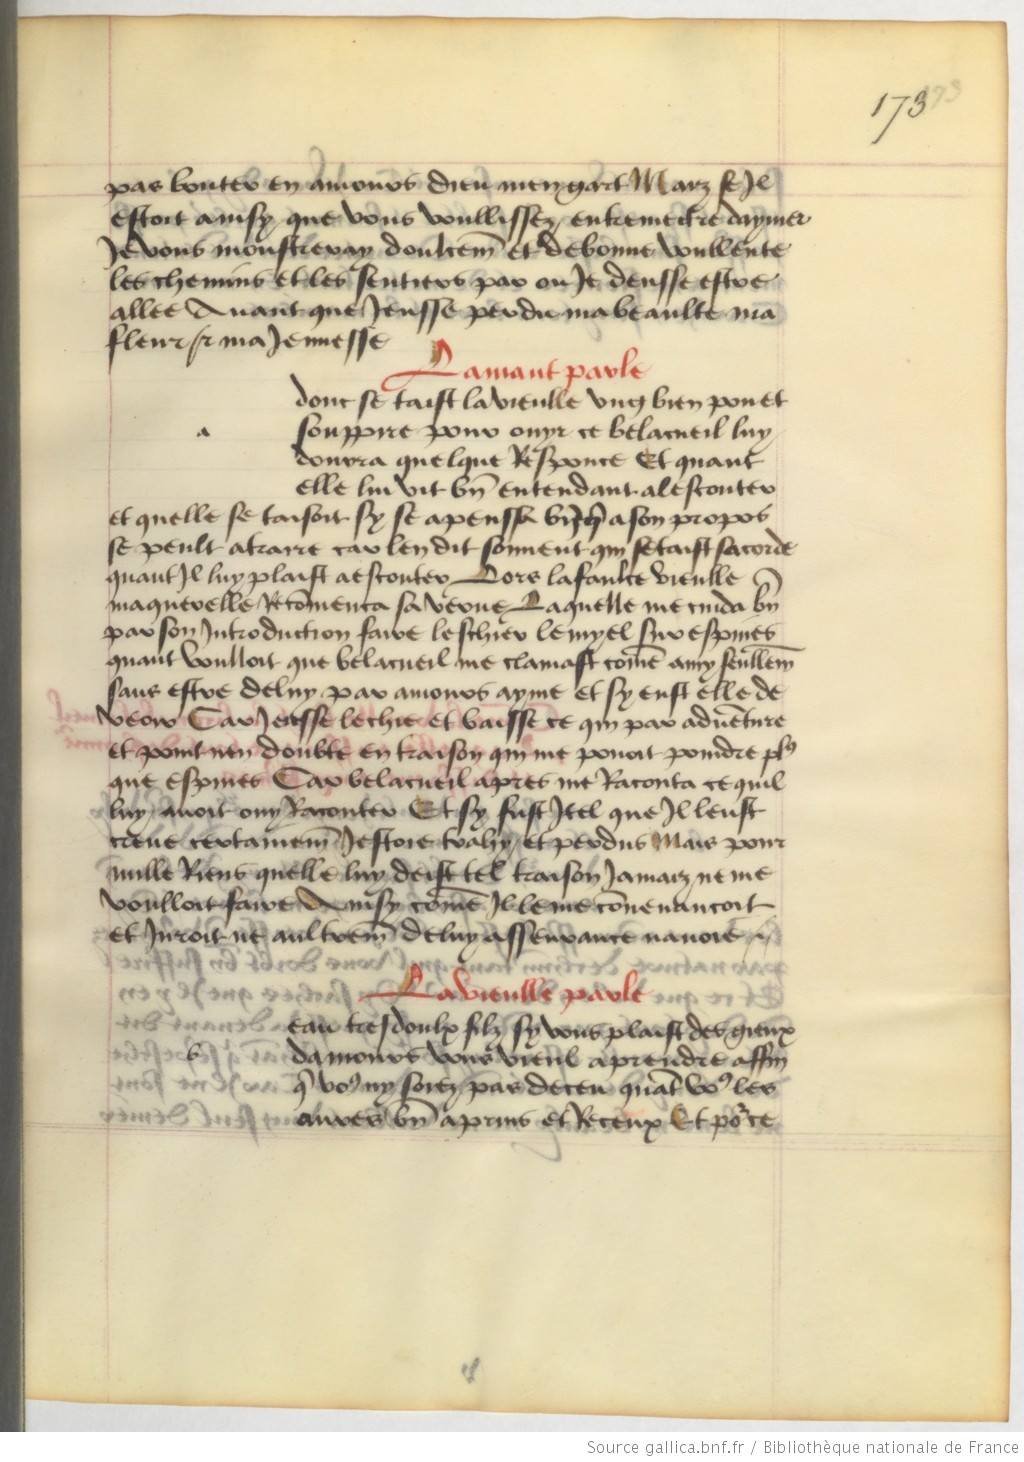 173
pas bouter en amours dieu men gart Maiz se Il
estoit ainsy que vous voullissez entremectre daymer
Je vous monstreray doulcem̄ et de bonne voullente
les chemins et les sentiers par ou Je deusse estre
allee Auant que Jeusse perdu ma beaulte ma
fleur et ma Jennesse
Lamant parle
donc se taist la vieille vng bien pou et
a souppire pour ouyr ce belacueil luy
donrra quelque Responce Et quant
elle lui vit bn̄ entendant a lescouter
et quelle se taisoit sy se apenssa a son propos
se peult atraire car len dit souuent qui se taist sacorde
quant Il luy plaist a escouter Lors la faulce vieille
maquerelle Recōmenca sa verue Laquelle me cuida bn̄
par son Introduction faire leschier le myel sur espines
quant voulloit que belacueil me clamast cōme amy seullem̄
sans estre de luy par amours ayme et sy eust elle de
veoir Car Jeusse lechie et baisse ce qui par aduēture
et point nen doubte en traison qui me pouoit poindre
que espines Car belacueil apres me Raconta ce quil
luy auoit ouy Raconter Et sy fust Itel que Il leust
creue certainem̄ Jestoie trahy et perdus Mais pour
nulle Riens quelle luy deist tel traison Jamaiz ne me
voulloit faire Ainsy cōme Il le me cōuenancoit
et Juroit ne aultrem̄ de luy asseurance nauoie
La vieille parle
eau tresdoulx filz sy vous plaist des gieux
b damours vous vieul aprendre affin
q̄ vo9 ny soiez pas deceu quāt vo9 les
aures bn̄ aprins et Receux Et po2 ce